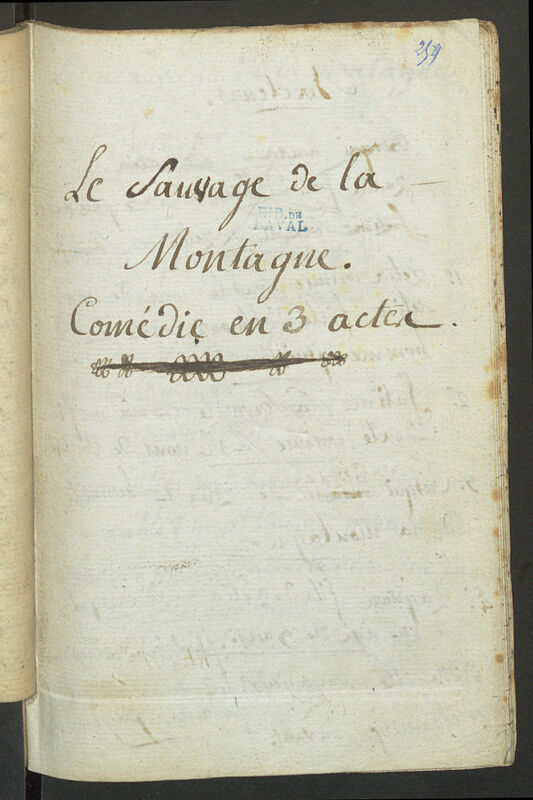 254
Le Sauvage de la
BIB. DE
LAVAL
Montagne.
Comédie en 3 actes.